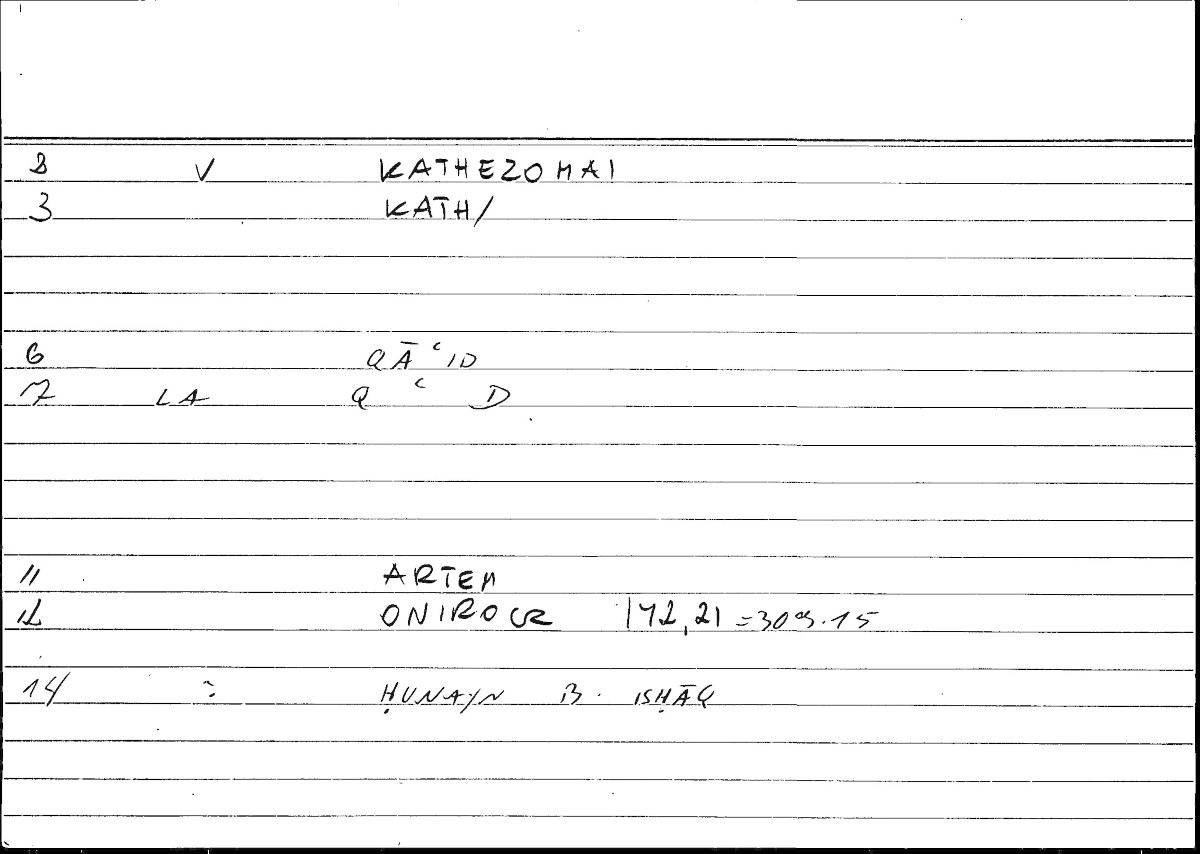 2 V KATHEZOMAI
3 KATH/
6 QĀʿID
7 LA Q ʿ D
11 ARTEM
12 ONIROCR 172,21 = 309.15
14 ? ḤUNAYN B. ISḤĀQ